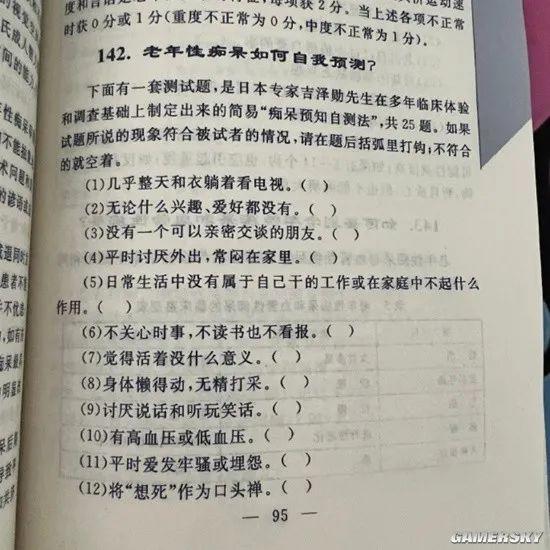 度和言语是
特征，每项获2分。当上述各项不正常
时获0分或1分(重度不正常为0分,中度不正常为1分)。
142. 老年性痴呆如何自我预测?
下面有一套测试题,是日本专家吉泽勋先生在多年临床体验
和调查基础上制定出来的简易“痴呆预知自测法”,共25题。如果
试题所说的现象符合被试者的情况,请在题后括弧里打钩;不符合
的就空着。
(1)几乎整天和衣躺着看电视。( )
(2)无论什么兴趣、爱好都没有。( )
(3)没有一个可以亲密交谈的朋友。( )
(4)平时讨厌外出,常闷在家里。( )
(5)日常生活中没有属于自己干的工作或在家庭中不起什么
作用。( )
(6)不关心时事,不读书也不看报。( )
(7)觉得活着没什么意义。( )
(8)身体懒得动,无精打采。( )
(9)讨厌说话和听玩笑话。( )
(10)有高血压或低血压。( )
(11)平时爱发牢骚或埋怨。( )
(12)将“想死”作为口头禅。( )
— 95 —
GAMERSKY